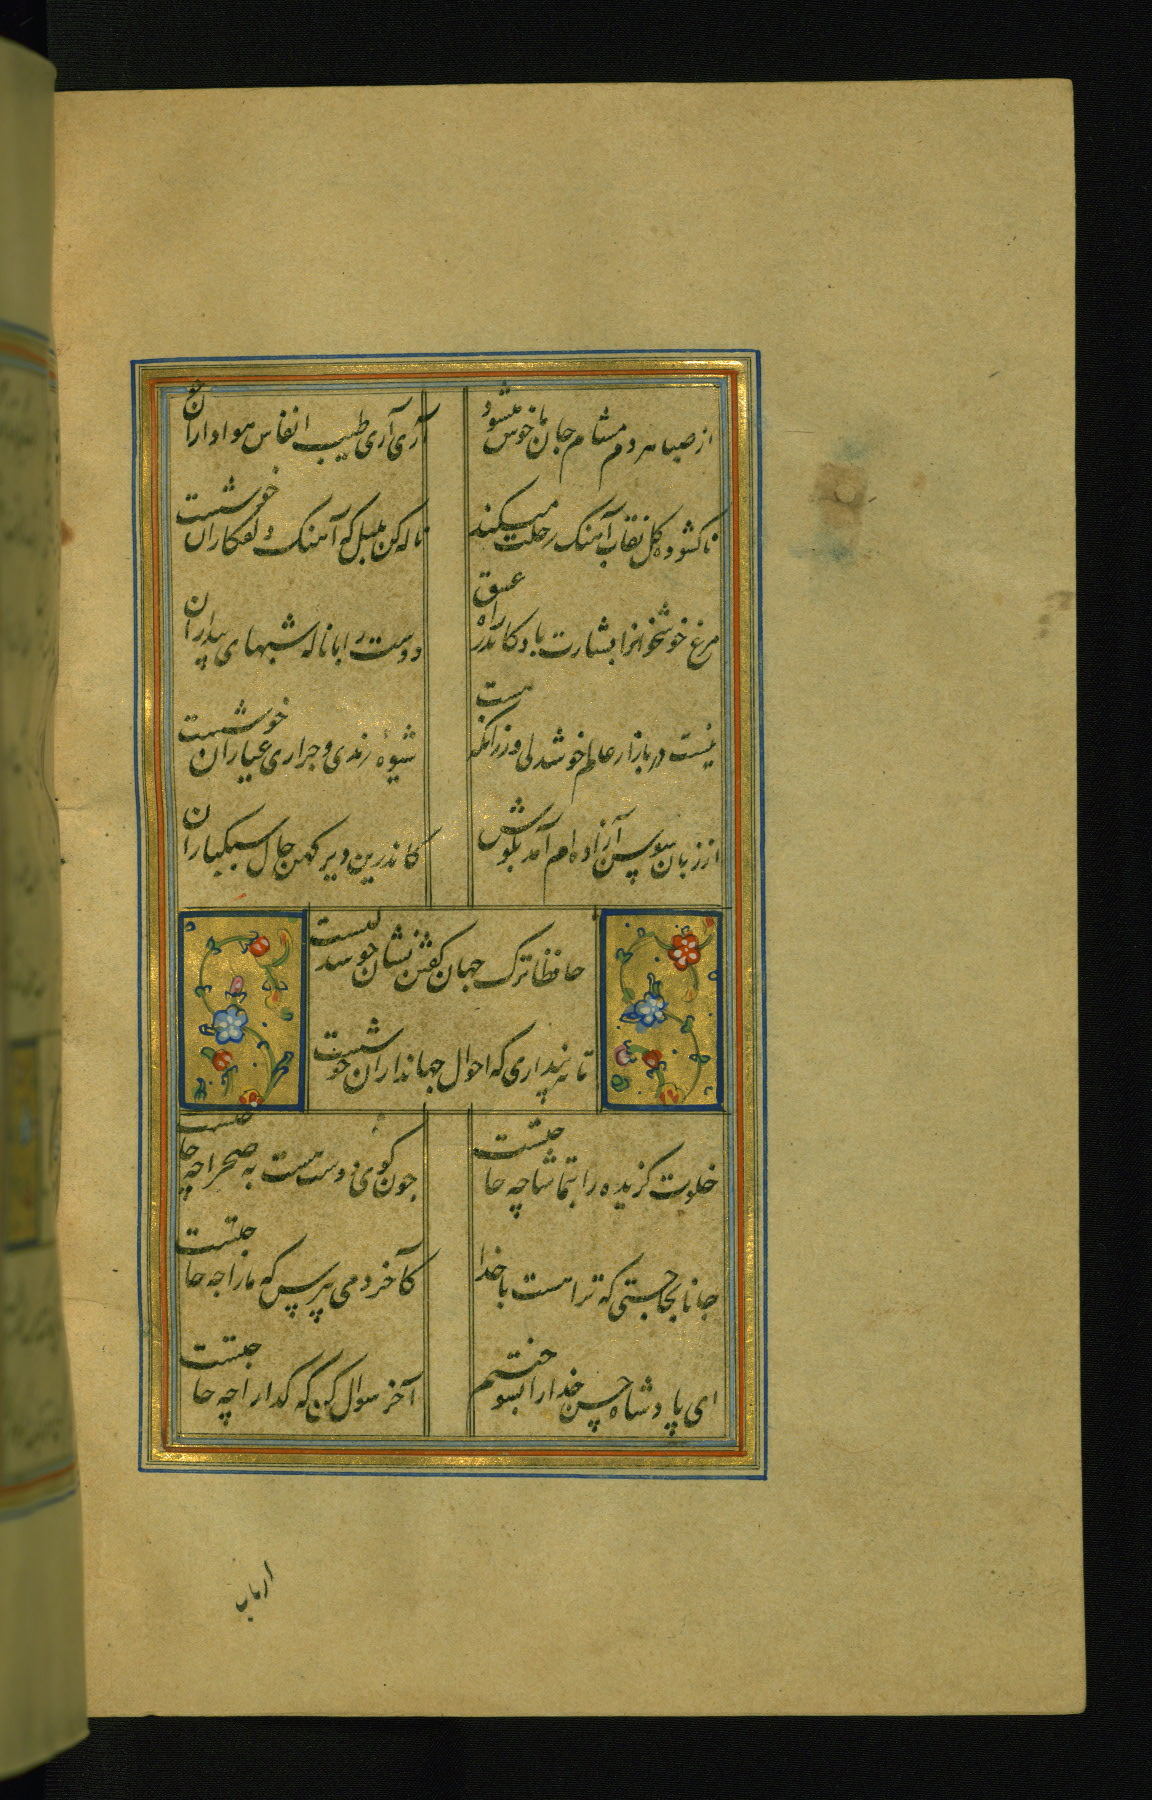 از صبا هر دم مشام جان ما خوش میشود
آری آری طیب انفاس هواداران خوشست
ناکشوده گل نقاب آهنک رحلت میکند
ناله کن بلبل که آهنک دلفکاران خوشست
مرغ خوشخوانرا بشارت باد کاندر راه عشق
دوست را با ناله شبهای بیداران
نیست در بازار عالم خوشدلی ورزانکه هست
شیوه رندی و عیاران خوشست
از زبان سوسن آزاده ام آمد بکوش
کاندرین دیر کهن حال سبکباران
حافظا ترک جهان کفتن نشان خوشدلیست
تا نپنداری که احوال جهانداران خوشست
خلوت کزیده را بتماشا چه حاجتست
چون کوی دوست هست به صحرا چه حاجتست
جانا بحاجتی که ترا هست با خدا
کآخر دمی بپرس که ما را چه حاجتست
ای پادشاه حسن خدا را بسوختیم
آخر سوال کن که کدا را چه حاجتست
ارباب